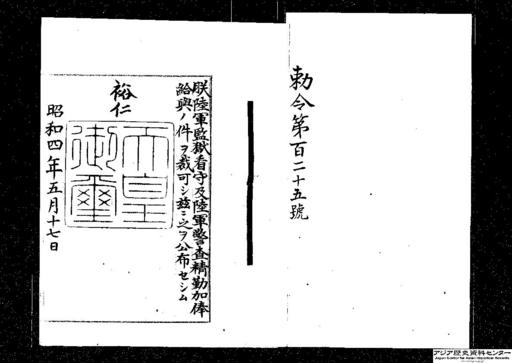 勅令第百二十五號
朕陸軍監獄看守及陸軍警査精勤加俸
給與ノ件ヲ裁可シ茲ニ之ヲ公布セシム
裕仁
天皇
御璽
昭和四年五月十七日
アジア歴史資料センター
Japan Center for Asian Historical Records